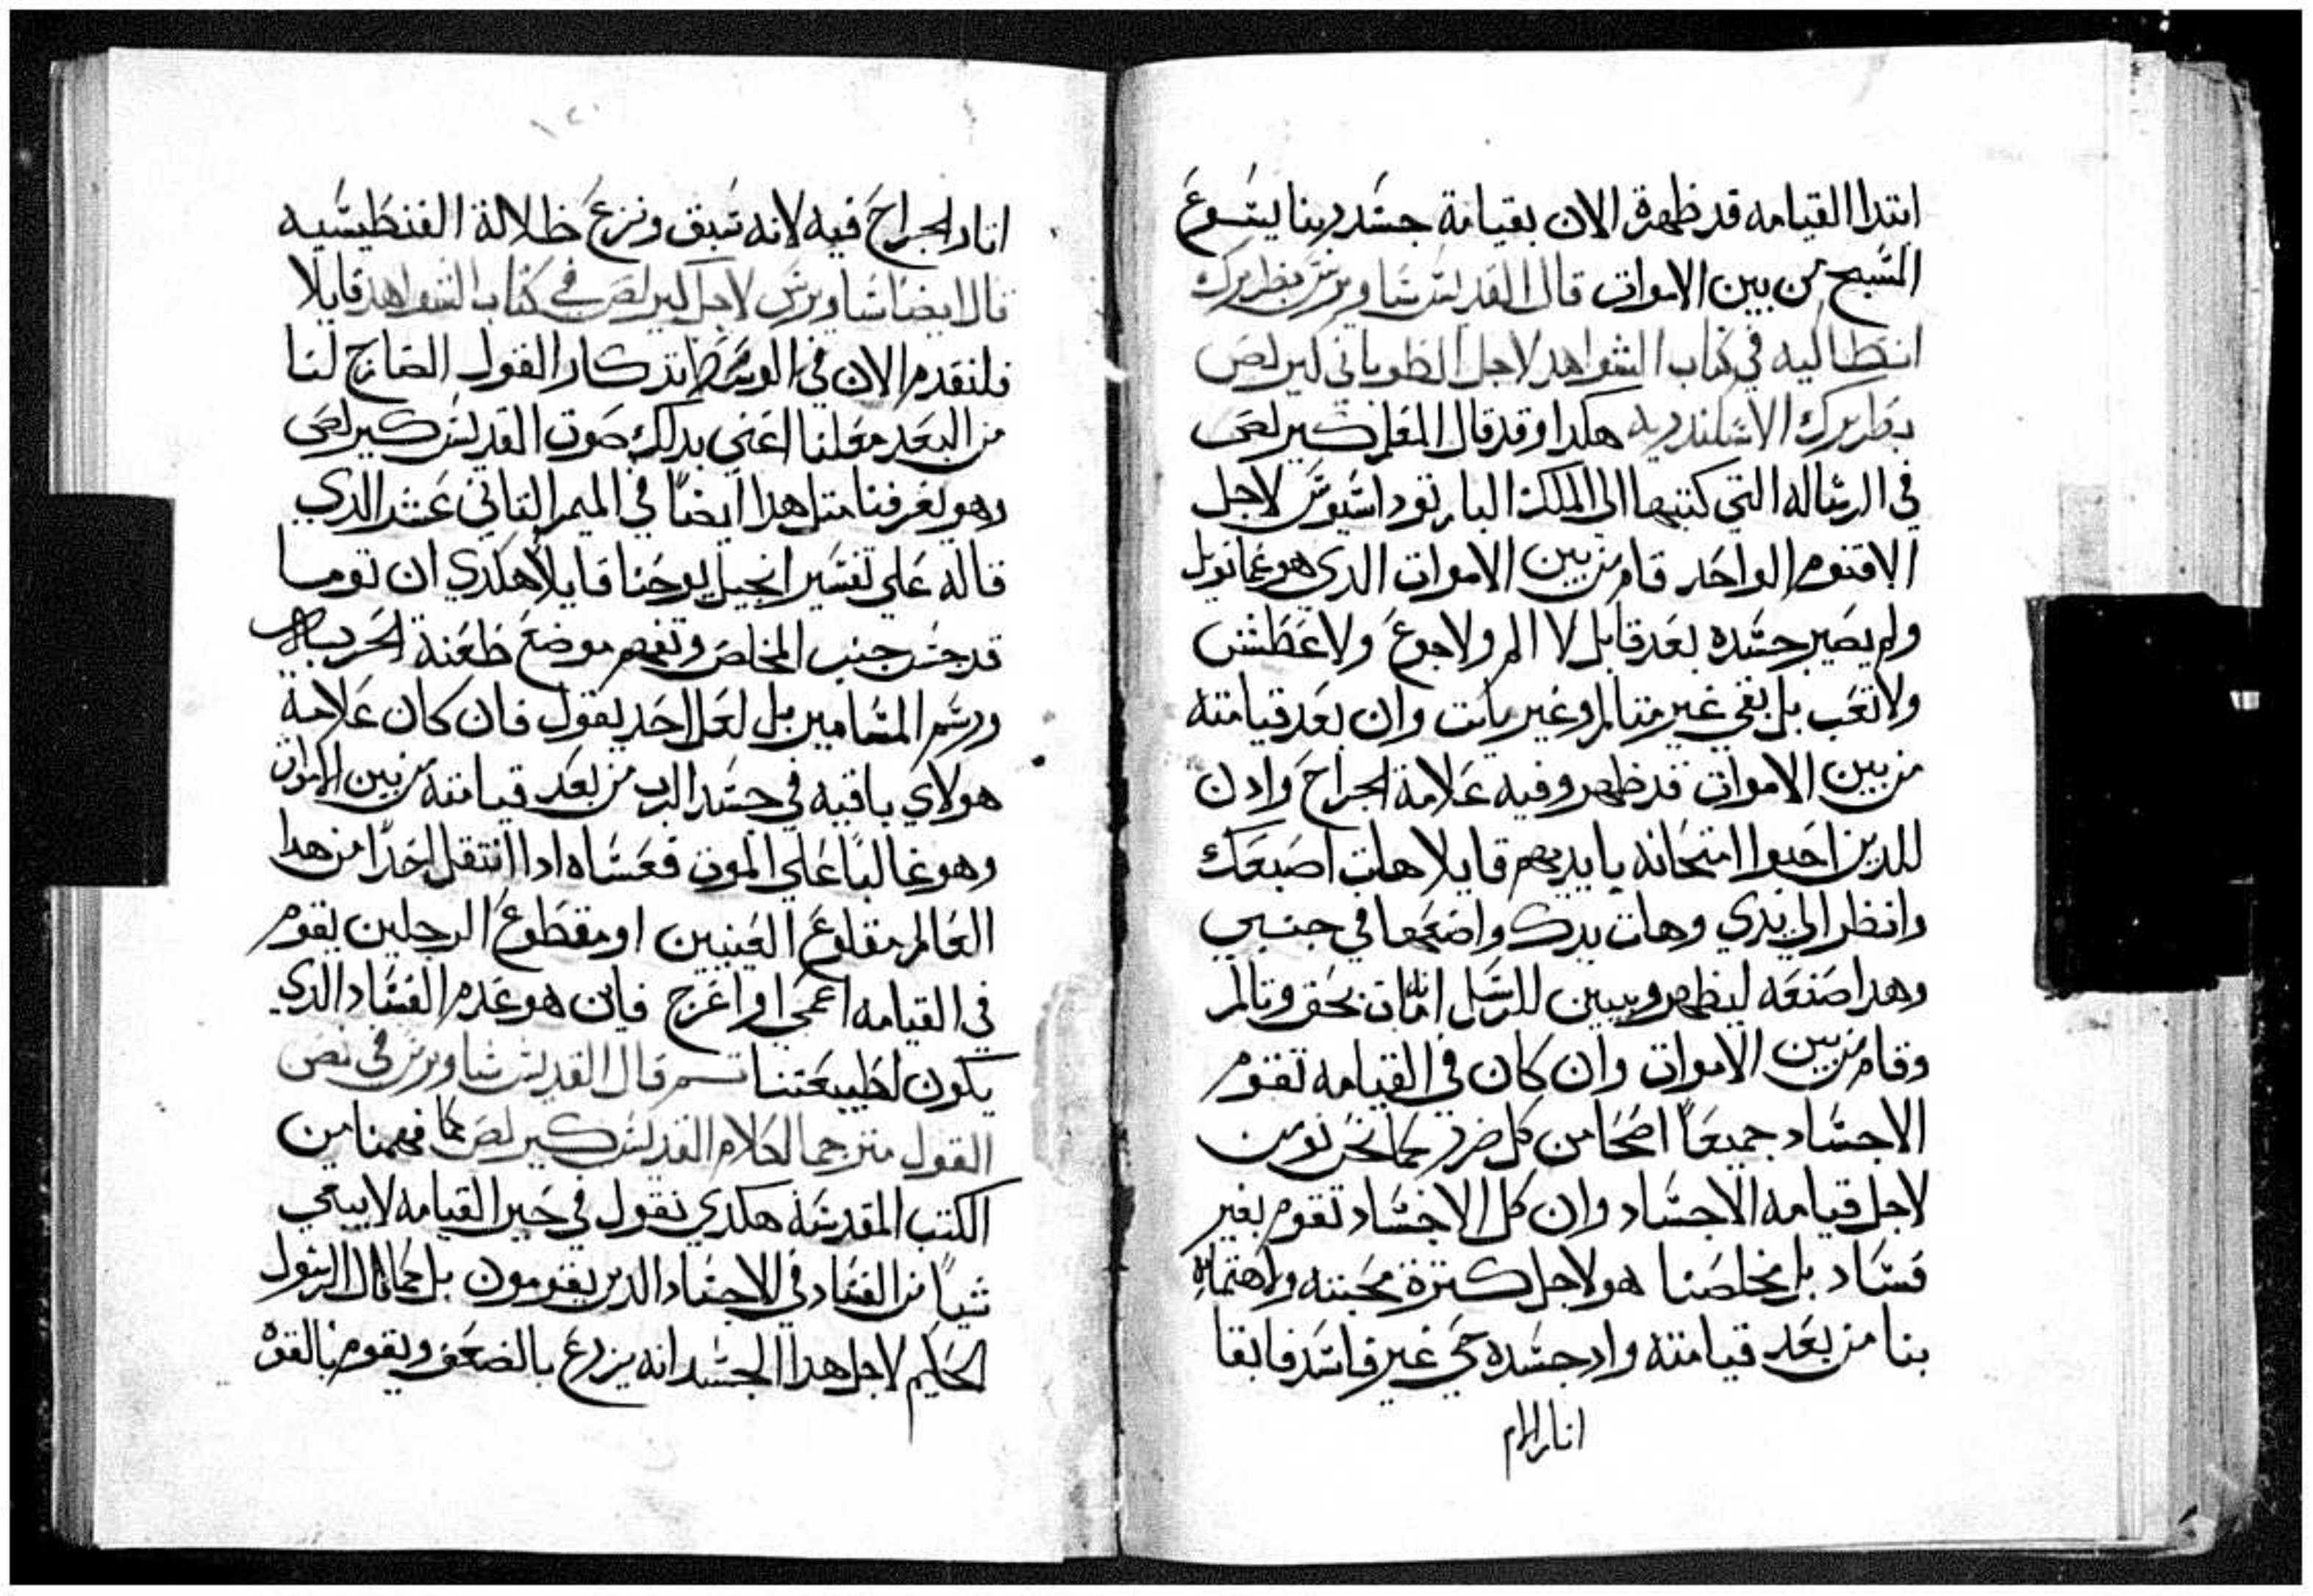 ابتدا القيامه قد ظهرة الان بقيامة جسد ربنا يسوع
المسيح من بين الاموات قال القديس ساويرس بطريرك
انطاكيه في كتاب الشواهد لاجل الطوباني كيرلص
بطريرك الاسكندريه هكدا وقد قال المعلم كيرلص
في الرساله التي كتبها الى الملك البار توداسيوس لاجل
الاقنوم الواحد قام من بين الاموات الدي هو عمانويل
ولم يصير جسده بعد قابل لا الم ولا جوع ولا عطش
ولا تعب بل بقي غير متالم وغير مايت وان بعد قيامته
من بين الاموات قد ظهر وفيه علامة الجراح وادن
للدين احبوا امتحانه بايديهم قايلا هات اصبعك
وانظر الي يدي وهات يدك واضعها في جنبي
وهدا صنعه ليظهر ويبين للرسل انه مات بحق وتالم
وقام من بين الاموات وان كان في القيامه تقوم
الاجساد جميعا اصحا من كل ضرر كما نحن نومن
لاجل قيامه الاجساد وان كل الاجساد تقوم بغير
فساد بل مخلصنا هو لاجل كترة محبته واهتمامه
بنا من بعد قيامته واد جسده حي غير فاسد فابقا
اتار الام
١٢٠
اتار الجراح فيه لانه سبق ونزع ظلالة الفنطيسيه
قال ايضا ساويرس لاجل كيرلص في كتاب الشواهد قايلا
فلنقدم الان في الوسط تدكار القول الصارخ لنا
من البعد معلنا اعني بدلك صوت القديس كيرلص
وهو يعرفنا متل هدا ايضا في الميمر التاني عشر الدي
قاله علي تفسير انجيل يوحنا قايلا هكدي ان توما
قد جس جنب المخلص وتفهم موضع طعنة الحربه
ورسم المسامير بل لعل احد يقول فان كان علامة
هولاي باقيه في جسد الرب من بعد قيامته من بين الاموات
وهو غالبا علي الموت فعساه ادا انتقل احدا من هدا
العالم مقلوع العينين او مقطوع الرجلين يقوم
في القيامه اعمي او اعرج فاين هو عدم الفساد الدي
يكون لطبيعتنا تم قال القديس ساويرس في نص
القول مترجما لكلام القديس كيرلص كما فهمنا من
الكتب المقدسة هكدي نقول في حين القيامه لا يبقي
شيا من الفساد في الاجساد الدين يقومون بل كما قال الرسول
الحكيم لاجل هدا الجسد انه يزرع بالضعف ويقوم بالقوة